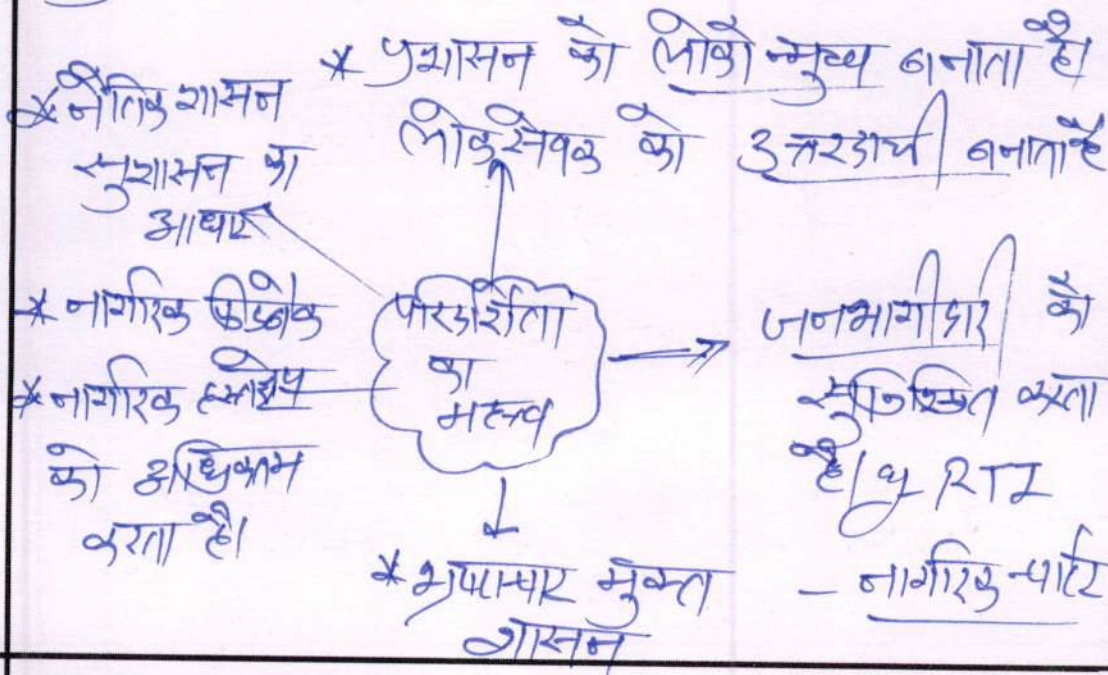 * प्रशासन को लोकोन्मुख बनाता है।
लोकसेवक को उत्तरदायी बनाता है
* नैतिक शासन
सुशासन का
आधार
* नागरिक फीडबैक
* नागरिक हस्तक्षेप
को अधिकतम
करता है।
पारदर्शिता
का
महत्व
जनभागीदारी को
सुनिश्चित करता
है। RTI
- नागरिक चार्टर
* भ्रष्टाचार मुक्त
शासन